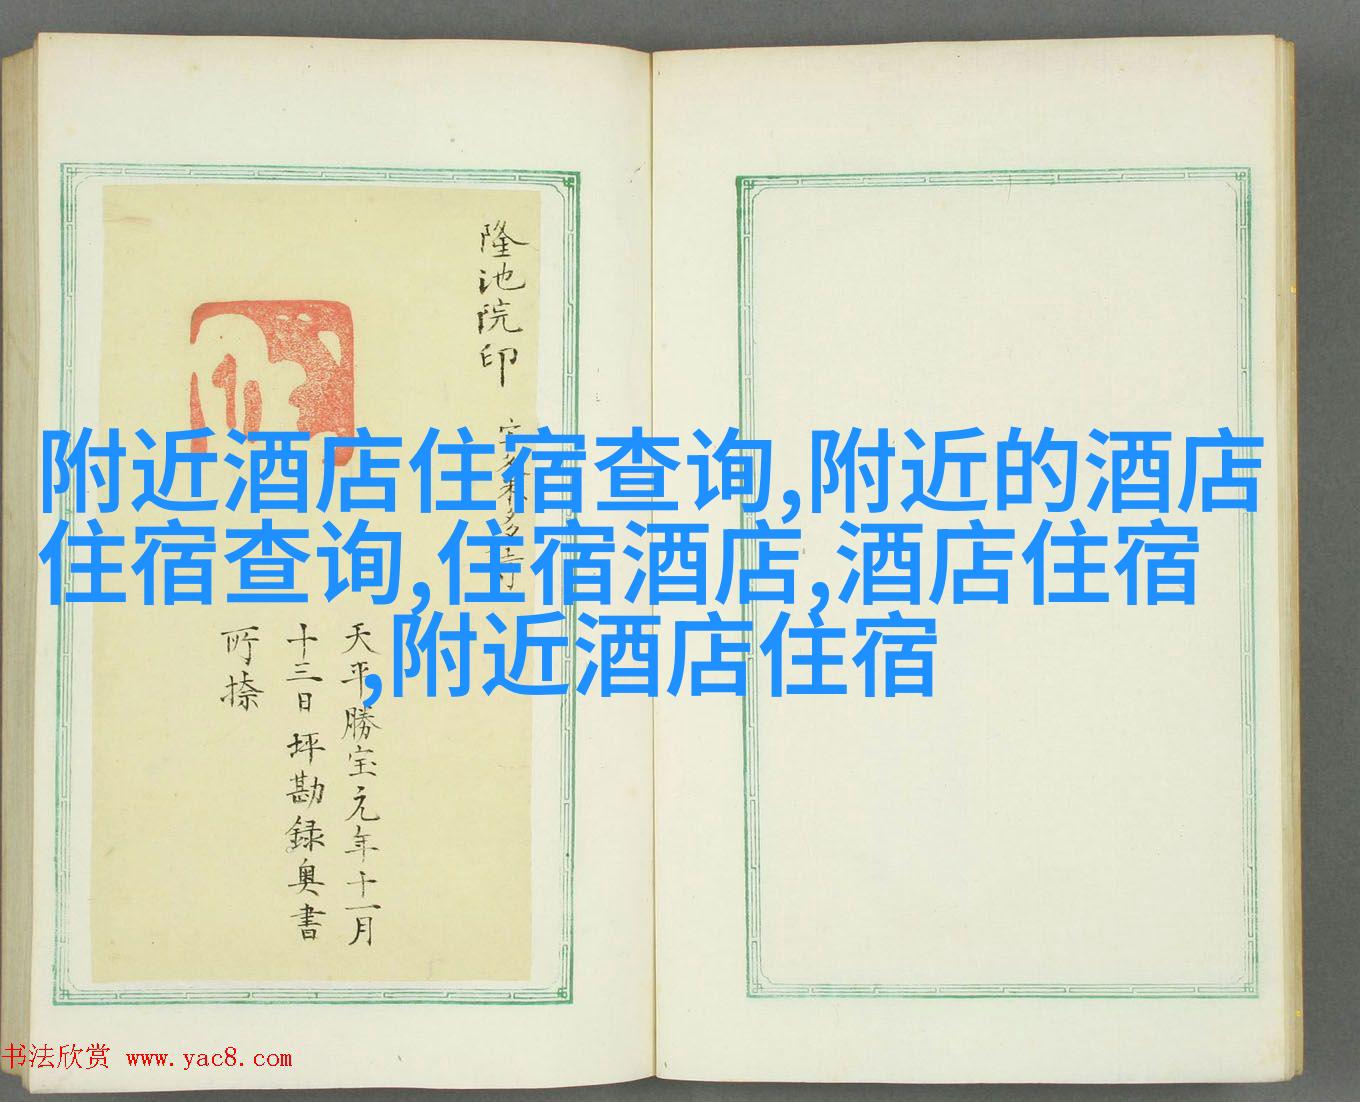 隆池院印
天平勝宝元年十一月
十三日坪勘録奥書
所捺
附近酒店住宿查询,附近的酒店
住宿查询,住宿酒店,酒店住宿
,附近酒店住宿
书法欣赏 www.yac8.com